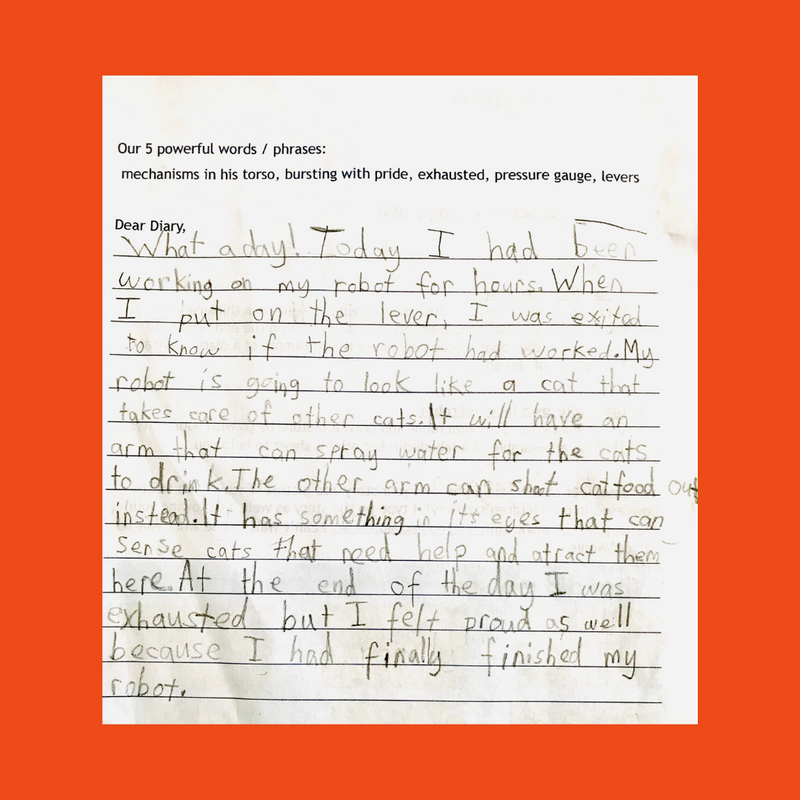 Our 5 powerful words / phrases:
mechanisms in his torso, bursting with pride, exhausted, pressure gauge, levers
Dear Diary,
What a day! Today I had been
working on my robot for hours. When
I put on the lever, I was exited
to know if the robot had worked. My
robot is going to look like a cat that
takes care of other cats. It will have an
arm that can spray water for the cats
to drink. The other arm can shoot catfood out
instead. It has something in its eyes that can
sense cats that need help and atract them
here. At the end of the day I was
exhausted but I felt proud as well
because I had finally finished my
robot.